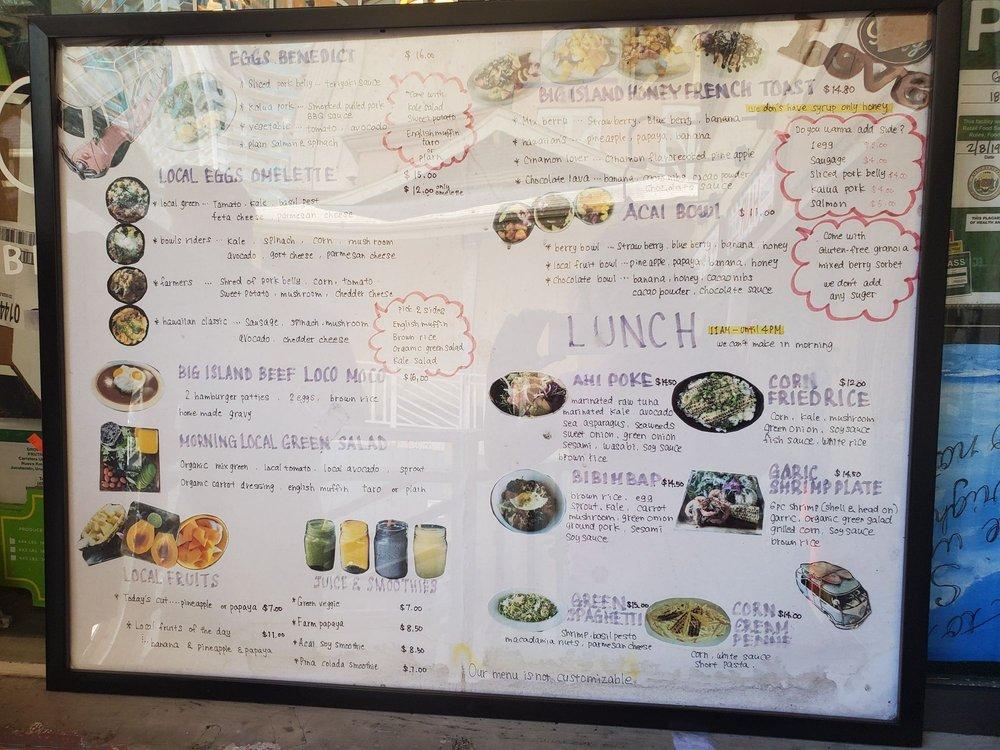 EGGS BENEDICT $ 16.00
* Sliced pork belly ... teriyaki sauce
* Kalua pork ... Smoked pulled pork
BBQ sauce
* vegetable ... tomato, avocado
* plain salmon & spinach
Come with
Kale salad
Sweet potato
English muffin
taro
or
plain
LOCAL EGGS OMELETTE $ 15.00
$ 12.00 only omelette
* local green ... Tomato, kale, basil pest
feta cheese, parmesan cheese
* bowls riders ... kale, spinach, corn, mushroom
avocado, gort cheese, parmesan cheese
* farmers ... Shred of pork belly, corn, tomato
Sweet potato, mushroom, chedder cheese
* hawaiian classic ... Sausage, spinach, mushroom
avocado, chedder cheese
Pick 2 sides
English muffin
Brown rice
Organic green salad
Kale salad
BIG ISLAND BEEF LOCO MOCO $16.00
2 hamburger patties, 2 eggs, brown rice
home made gravy
MORNING LOCAL GREEN SALAD
Organic mix green, local tomato, local avocado, sprout
Organic carrot dressing, english muffin taro or plain
LOCAL FRUITS
* Today's cut....pineapple or papaya $7.00
* Local fruits of the day $11.00
banana & pineapple & papaya
JUICE & SMOOTHIES
* Green veggie $7.00
* Farm papaya $ 8.50
* Acai soy smoothie $ 8.50
* Pina colada smoothie $.7.00
love
BIG ISLAND HONEY FRENCH TOAST $14.80
we don's have syrup only honey
* Mix berry ... Strawberry, Blue berry, banana
* hawaiian's ... pineapple, papaya, banana
* Cinamon lover ... Cinamon flavor
pine apple
* Chocolate lava ... banana, cacao powder
chocolate sauce
Do you wanna add side?
1 egg
Saugage
Sliced pork belly $4.00
Kalua pork
Salmon
ACAI BOWL $ 11.00
* berry bowl ... Strawberry, blue berry, banana, honey
* local fruit bowl ... pine apple, papaya, banana, honey
* Chocolate bowl ... banana, honey, cacao nibs
cacao powder, chocolate sauce
Come with
Gluten-free granola
mixed berry sorbet
we don't add
any suger
LUNCH 11AM - until 4PM
we can't make in morning
AHI POKE $14.50
marinated raw tuna
marinated kale, avocado
sea asparagus, seaweeds
sweet onion, green onion
sesami, wasabi, soy sauce
brown rice
CORN FRIED RICE $12.00
Corn, kale, mushroom
green onion, soy sauce
fish sauce, white rice
BIBIMBAP $14.50
brown rice, egg
sprout, kale, carrot
mushroom, green onion
ground pork, sesami
soy sauce
GARIC SHRIMP PLATE $ 14.50
6pc shrimp (shell & head on)
garric, organic green salad
grilled corn, soy sauce
brown rice
GREEN SPAGHETTI $15.00
Shrimp, basil pesto
macadamia nuts, parmesan cheese
CORN CREAM PENNE $14.00
Corn, white sauce
Short pasta.
Our menu is not customizable.